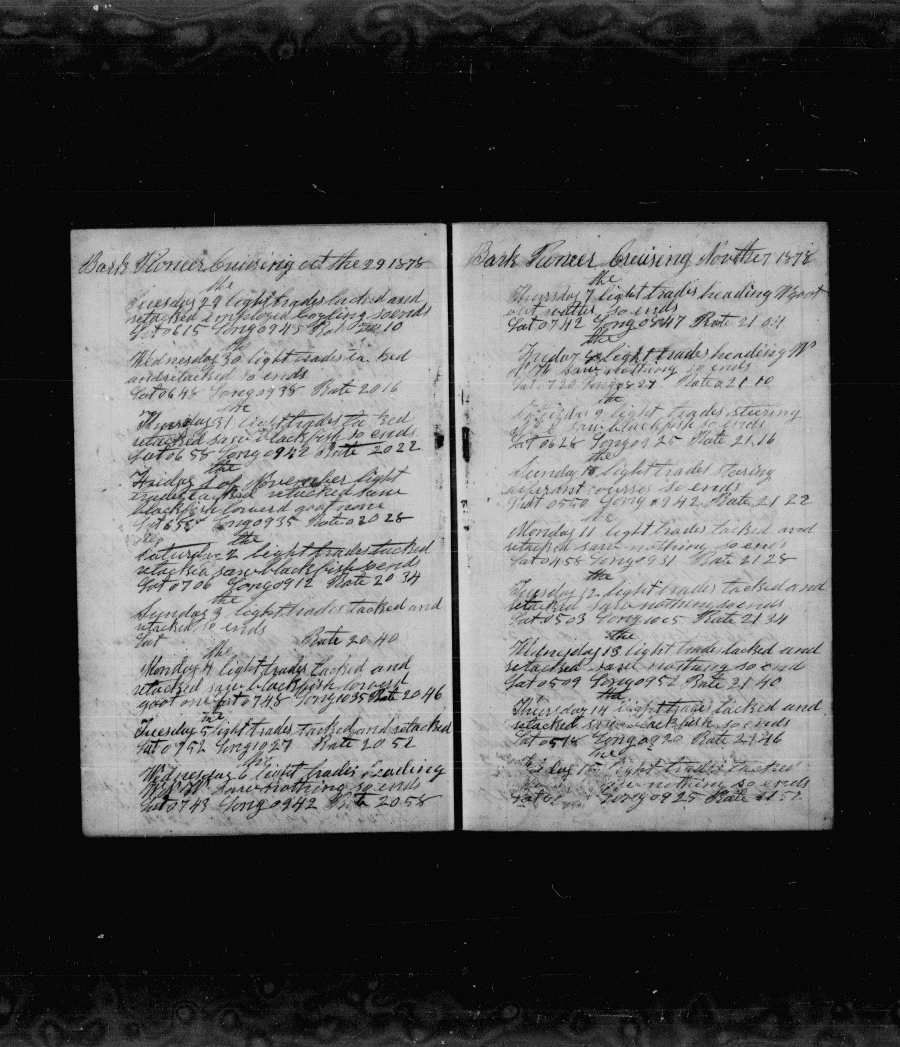 Bark Pioneer Cruising oct the 29 1878
the
Tuesday 29 light trades tacked and
retacked employed boyling so ends
Lat 0615 Long 0945 Rate 2010
Wednesday 30 light trades tacked
and retacked so ends
Lat 0648 Long 0938 Rate 2016
the
Thursday 31 light trades tacked
retacked saw blackfish so ends
Lat 0658 Long 0942 Rate 2022
the
Friday 1 of November light
trades tacked retacked saw
blackfish lowerd goot none
Long 0935 Rate 2028
the
Saturday 2 light trades tacked
retacked saw blackfish so ends
Lat 0706 Long 0912 Rate 2034
the
Sunday 3 light trades tacked and
retacked so ends
Lat Rate 2040
the
Monday 4 light trades tacked and
retacked saw blackfish lowerd
goot one Lat 0748 Long 1035 Rate 2046
the
Tuesday 5 light trades tacked and retacked
Lat 0752 Long 1027 Rate 2052
the
Wednesday 6 light trades heading
saw nothing so ends
Lat 0743 Long 0942 Rate 2058
Bark Pioneer Cruising Nov the 7 1878
the
Thursday 7 light trades heading W
so ends
Lat 0742 Long 0847 Rate 2104
the
Friday 8 light trades heading W
saw nothing so ends
Lat 720 Long 0827 Rate 2110
the
9 light trades steering
saw blackfish so ends
Lat 0628 Long 0925 Rate 2116
the
Sunday 10 light trades stearing
diferant courses so ends
Lat 0550 Long 0942 Rate 2122
the
Monday 11 light trades tacked and
retacked saw nothing so ends
Lat 0458 Long 0931 Rate 2128
the
Tuesday 12 light trades tacked and
retacked saw nothing so ends
Lat 0503 Long 1005 Rate 2134
the
Wednesday 13 light trades tacked and
retacked saw nothing so end
Lat 0509 Long 0952 Rate 2140
the
Thursday 14 light trades tacked and
retacked saw blackfish so ends
Lat 0518 Long 0920 Rate 2146
the
Friday 15 light trades tacked
saw nothing so ends
Long 0925 Rate 2152